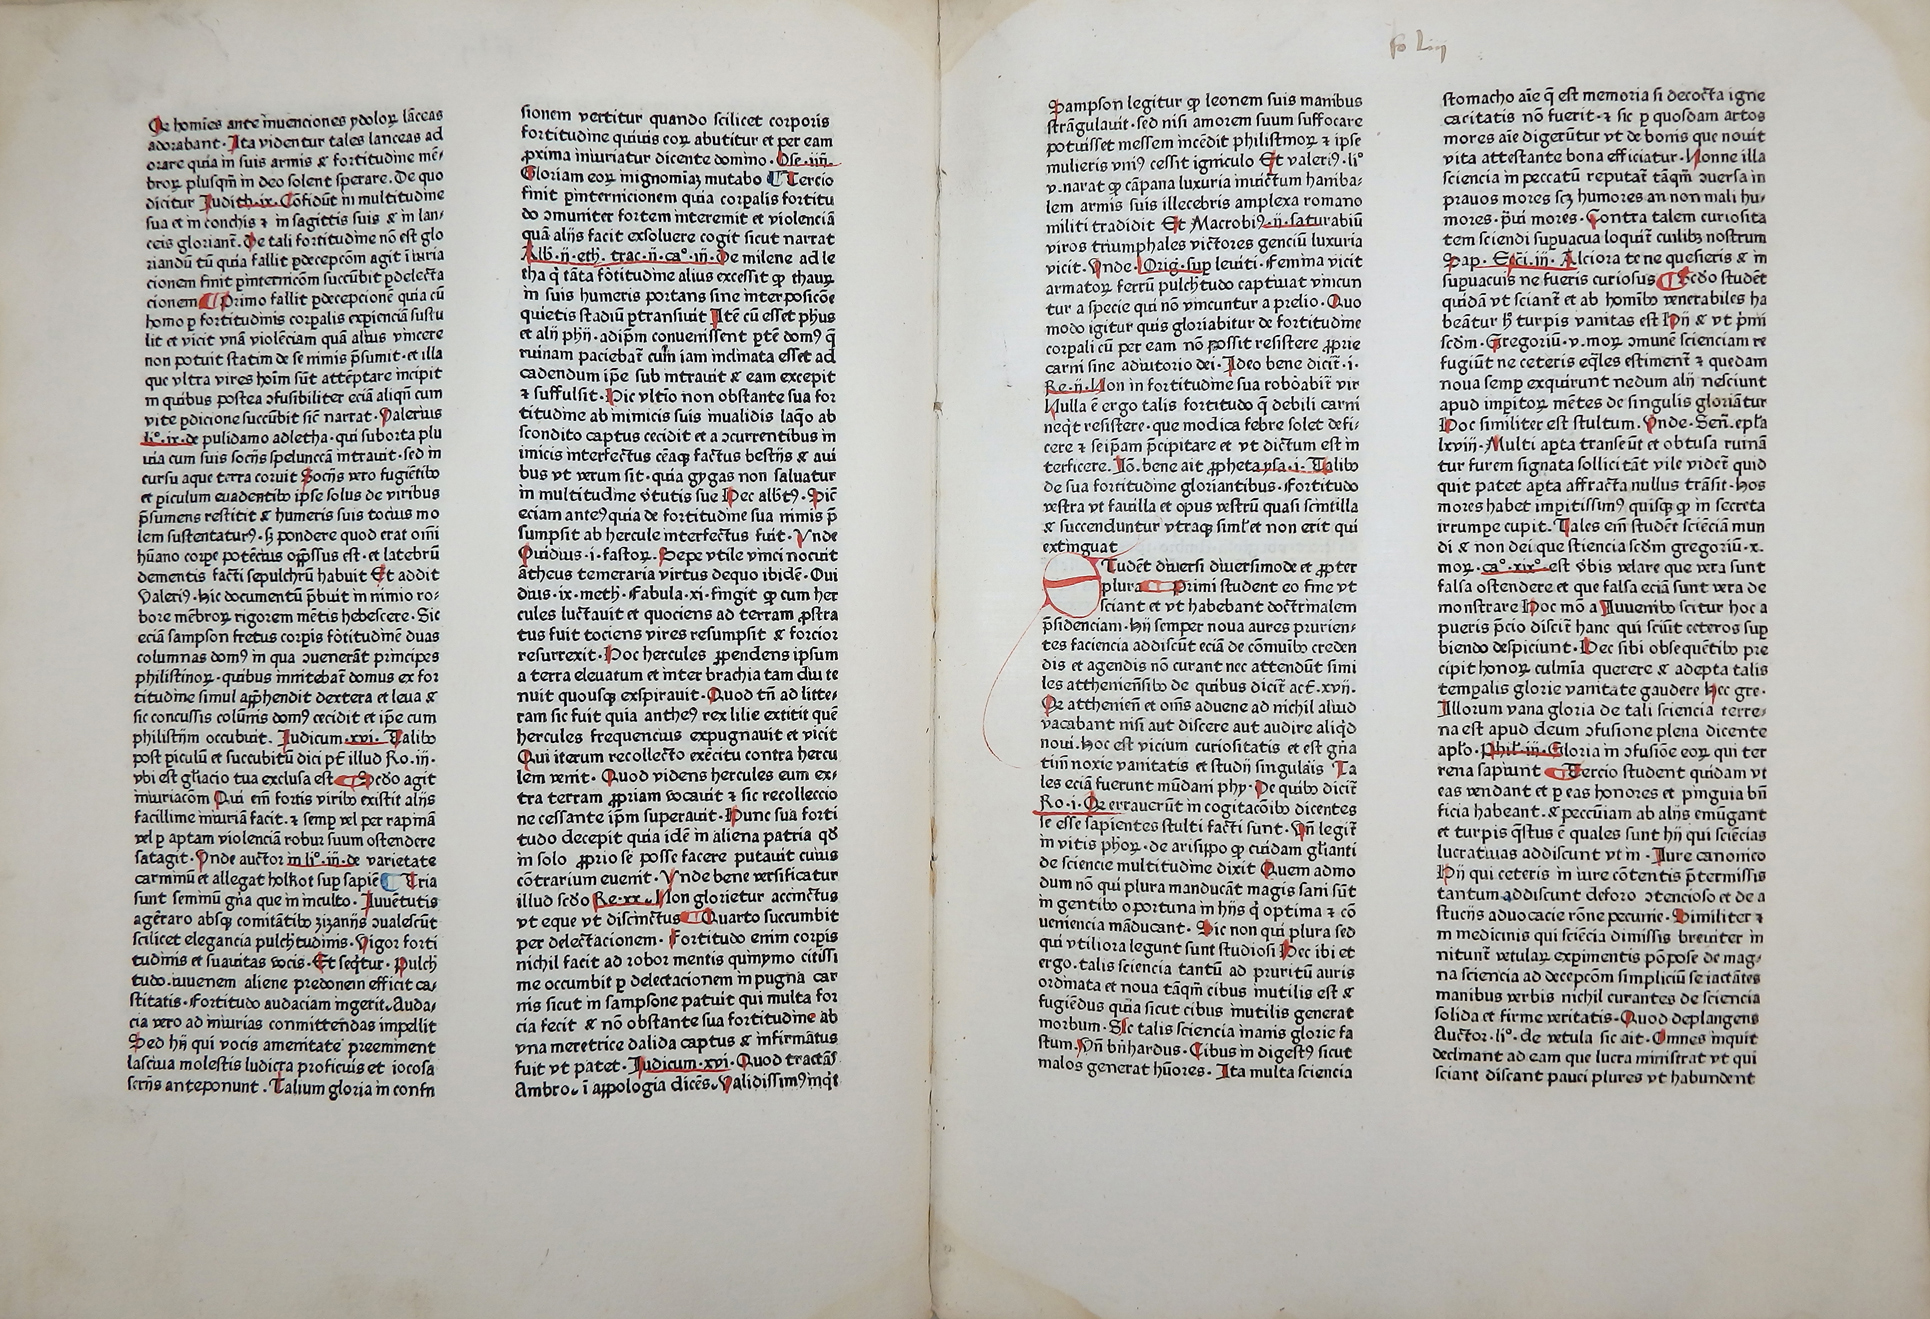 Qe homīes ante īnuenciones ydoloꝝ lāceas
adorabant. Ita videntur tales lanceas ad
orare quia in suis armis & fortitudine mē⸗
broꝝ plusqm̄ in deo solent sperare. De quo
dicitur Judith.ix. Cōfidūt in multitudine
sua et in conchis ⁊ in sagittis suis & in lan⸗
ceis gloriant̄. De tali fortitudine nō est glo
riandū tū quia fallit pdecepcōm agit ī iuria
cionem finit pinternicōm succūbit pdelecta
cionem Primo fallit pdecepcionē quia cū
homo p fortitudinis corpalis expienciā sustu
lit et vicit vnā violēciam quā alius vincere
non potuit statim de se nimis p̄sumit. et illa
que vltra vires hoīm sūt attēptare incipit
in quibus postea ɔfusibiliter eciā aliqn̄ cum
vite pdicione succūbit sic̄ narrat. Valerius
li°.ix. de pulidamo adletha. qui suborta plu
uia cum suis socijs speluncā intrauit. sed in
cursu aque terra coruit Socijs vero fugiētibꝰ
et piculum euadentibꝰ ipse solus de viribus
p̄sumens restitit & humeris suis tocius mo
lem sustentaturꝰ. sꝫ pondere quod erat om̄i
hūano corpe potēcius opp̄ssus est. et latebrū
dementis facti sepulchrū habuit Et addit
Valeriꝰ. hic documentū p̄buit in nimio ro⸗
bore mēbroꝝ rigorem mētis hebescere. Sic
eciā sampson fretus corpis fōtitudinē duas
columnas domꝰ in qua ɔuenerāt principes
philistinoꝝ. quibus innitebat̄ domus ex for
titudine simul app̄hendit dextera et leua &
sic concussis colūnis domꝰ cecidit et ip̄e cum
philistijm occubuit. Judicum.xvi. Talibꝰ
post piculū et succubitū dici pt̄ illud Ro.iij.
vbi est gl̄iacio tua exclusa est Scd̄o agit
iniuriacōm Qui em̄ fortis viribꝰ existit alijs
facillime iniuriā facit. ⁊ semp vel per rapinā
vel p aptam violenciā robur suum ostendere
satagit. Vnde auctor in li°.iij. de varietate
carminū et allegat holkot sup sapiē Tria
sunt seminū gn̄a que in inculto. Iuuētutis
agēraro absqꝫ comitātibꝰ zizanijs ɔualescūt
scilicet elegancia pulch̄tudinis. Vigor forti
tudinis et suauitas vocis. Et seqt̄ur. Pulch̄
tudo. iuuenem aliene predonem efficit ca⸗
stitatis. Fortitudo audaciam ingerit. Auda⸗
cia vero ad iniurias conmittendas impellit
Sed hij qui vocis amenitate preeminent
lasciua molestis ludicra proficuis et iocosa
serijs anteponunt. Talium gloria in confu
sionem vertitur quando scilicet corporis
fortitudine quiuis eoꝝ abutitur et per eam
ꝓxima iniuriatur dicente domino. Ose.iiij.
Gloriam eoꝝ in ignomiaꝫ mutabo Tercio
finit pinternicionem quia corpalis fortitu
do ɔmuniter fortem interemit et violenciā
quā alijs facit exsoluere cogit sicut narrat
Alb.ij.eth. trac.ij.ca°.iij. De milene ad le
tha q̄ tāta fōtitudine alius excessit qꝫ thauꝝ
in suis humeris portans sine interposicōe
quietis stadiū ptransiuit Itē cū esset ph̄us
et alij phij. ad ip̄m conuenissent ptē domꝰ q̄
ruinam paciebat̄ cum iam inclinata esset ad
cadendum ip̄e sub intrauit & eam excepit
⁊ suffulsit. Hic vltīo non obstante sua for
titudine ab inimicis suis inualidis laqꝰo ab
scondito captus cecidit et a ɔcurrentibus in
imicis interfectus ceāqꝫ factus bestijs & aui
bus vt verum sit. quia gygas non saluatur
in multitudine v̄tutis sue Hec alb̄tꝰ. Sic
eciam anteꝰ quia de fortitudine sua nimis p̄
sumpsit ab hercule interfectus fuit. Vnde
Ouidius.i.fastoꝝ. Sepe vtile vinci nocuit
ātheus temeraria virtus dequo ibidē. Oui
dius.ix.meth. Fabula.xi. fingit qꝫ cum her
cules luctauit et quociens ad terram ꝓstra
tus fuit tociens vires resumpsit & forcior
resurrexit. Hoc hercules ꝓpendens ipsum
a terra eleuatum et inter brachia tam diu te
nuit quousqꝫ exspirauit. Quod tn̄ ad litte⸗
ram sic fuit quia antheꝰ rex lilie extitit quē
hercules frequencius expugnauit et vicit
Qui iterum recollecto exe̅citu contra hercu
lem venit. Quod videns hercules eum ex⸗
tra terram ꝓpriam vocauit ⁊ sic recolleccio
ne cessante ip̄m superauit. Hunc sua forti
tudo decepit quia idē in aliena patria qd̄
in solo ꝓprio se posse facere putauit cuius
cōtrarium euenit. Vnde bene versificatur
illud scd̄o Re.xx. Non glorietur accinctus
vt eque vt discinctus Quarto succumbit
per delectacionem. Fortitudo enim corpis
nichil facit ad robor mentis quinymo citissi
me occumbit p delectacionem in pugna car
nis sicut in sampsone patuit qui multa for
cia fecit & nō obstante sua fortitudine ab
vna meretrice dalida captus & infirmātus
fuit vt patet. Judicum.xvi. Quod tractās̄
Ambro. ī appologia dicēs. Validissimꝰ inqt̄
fo Liiij
Sampson legitur qꝫ leonem suis manibus
strāgulauit. sed nisi amorem suum suffocare
potuisset messem incēdit philistinoꝝ ⁊ ipse
mulieris vniꝰ cessit igniculo Et valeriꝰ. li°
v. narat qꝫ cāpana luxuria inuictum haniba⸗
lem armis suis illecebris amplexa romano
militi tradidit Et Macrobiꝰ.ij.saturabiū
viros triumphales victores genciū luxuria
vicit. Vnde. Orig. sup leuiti. Femina vicit
armatoꝝ ferrū pulch̄tudo captiuat vincun
tur a specie qui nō vincuntur a prelio. Quo
modo igitur quis gloriabitur de fortitudine
corpali cū per eam nō possit resistere ꝓprie
carni sine adiutorio dei. Ideo bene dicit̄.i.
Re.ij. Non in fortitudine sua robōabit̄ vir
Nulla ē ergo talis fortitudo q̄ debili carni
neqt̄ resistere. que modica febre solet defi⸗
cere ⁊ seip̄am p̄cipitare et vt dictum est in
terficere. Iō. bene ait ꝓpheta ysa.i. Talibꝰ
de sua fortitudine gloriantibus. Fortitudo
vestra vt fauilla et opus vestrū quasi scintilla
& succenduntur vtraqꝫ siml̄ et non erit qui
extinguat
STudēt diuersi diuersimode et ꝓpter
plura Primi student eo fine vt
sciant et vt habebant doctrinalem
p̄sidenciam. Hij semper noua aures prurien⸗
tes faciencia addiscūt eciā de cōmuībꝰ creden
dis et agendis nō curant nec attendūt simi
les attheniēn̄sibꝰ de quibus dicit̄ act̄.xvij.
Qe atthenien̄ et om̄s aduene ad nichil aliud
vacabant nisi aut discere aut audire aliqd̄
noui. Hoc est vicium curiositatis et est gn̄a
tiuū noxie vanitatis et studij singulais̄ Ta
les eciā fuerunt mūdani phy. De quibꝰ dicit̄
Ro.i. Qe errauerūt in cogitacōibꝰ dicentes
se esse sapientes stulti facti sunt. Vn̄ legit̄
in vitis phoꝝ. de arisippo qꝫ cuidam gl̄ianti
de sciencie multitudine dixit Quem admo
dum nō qui plura manducāt magis sani sūt
in gentibꝰ oportuna in hijs q̄ optima ⁊ cō
ueniencia māducant. Sic non qui plura sed
qui vtiliora legunt sunt studiosi Hec ibi et
ergo. talis sciencia tantū ad pruritū auris
ordinata et noua tāqm̄ cibus inutilis est &
fugiēdus quia sicut cibus inutilis generat
morbum. Sic talis sciencia inanis glorie fa
stum. Vn̄ bn̄hardus. Cibus in digestꝰ sicut
malos generat hūores. Ita multa sciencia
stomacho aīe q̄ est memoria si decocta igne
caritatis nō fuerit. ⁊ sic p quosdam artos
mores aīe digerūtur vt de bonis que nouit
vita attestante bona efficiatur. Nonne illa
sciencia in peccatū reputat̄ tāqm̄ ɔuersa in
prauos mores scꝫ humores an non mali hu⸗
mores. p̄ui mores. Contra talem curiosita
tem sciendi supuacua loquit̄ cuilibꝫ nostrum
Sap. Ecci.iij. Alciora te ne quesieris & in
supuacuis ne fueris curiosus Scd̄o studēt
quidā vt sciant̄ et ab homībꝰ venerabiles ha
beātur hꝫ turpis vanitas est hij & vt p̄mi
scd̄m. Gregoriū.v.moꝝ ɔmunē scienciam re
fugiūt ne ceteris eqles estiment̄ ⁊ quedam
noua semp exquirunt nedum alij nesciunt
apud impitoꝝ mētes de singulis gloriātur
Hoc similiter est stultum. Vnde. Sen̄. epl̄a
lxviij. Multi apta transeūt et obtusa ruinā
tur furem signata sollicitāt vile videt̄ quid
quit patet apta affracta nullus trāsit. hos
mores habet impitissimꝰ quisqꝫ qꝫ in secreta
irrumpe cupit. Tales em̄ studēt sciēciā mun
di & non dei que stiencia scd̄m gregoriū.x.
moꝝ.ca°.xix° est v̄bis velare que vera sunt
falsa ostendere et que falsa eciā sunt vera de
monstrare Hoc mō a Iuuenibꝰ scitur hoc a
pueris p̄cio discit̄ hanc qui sciūt ceteros sup
biendo despiciunt. Hec sibi obsequētibꝰ pre
cipit honoꝝ culmīa querere & adepta talis
tempalis glorie vanitate gaudere Hec gre.
Illorum vana gloria de tali sciencia terre⸗
na est apud deum ɔfusione plena dicente
apl̄o. Phil.iij. Gloria in ɔfusiōe eoꝝ qui ter
rena sapiunt Tercio student quidam vt
eas vendant et p eas honores et pinguia bn̄
ficia habeant. & peccūiam ab alijs emūgant
et turpis q̄stus ē quales sunt hij qui sciēcias
lucratiuas addiscunt vt in. Iure canonico
Hij qui ceteris in iure cōtentis p̄termissis
tantum addiscunt deforo ɔtencioso et de a
stucijs aduocacie rōne pecunie. Similiter ⁊
in medicinis qui sciēcia dimissis breuiter in
nitunt̄ vetulaꝝ expimentis pōpose de mag⸗
na sciencia ad decepcōm simpliciū se iactātes
manibus verbis nichil curantes de sciencia
solida et firme veritatis. Quod deplangens
Auctor. li°. de vetula sic ait. Omnes inquit
declinant ad eam que lucra ministrat vt qui
sciant discant pauci plures vt habundent